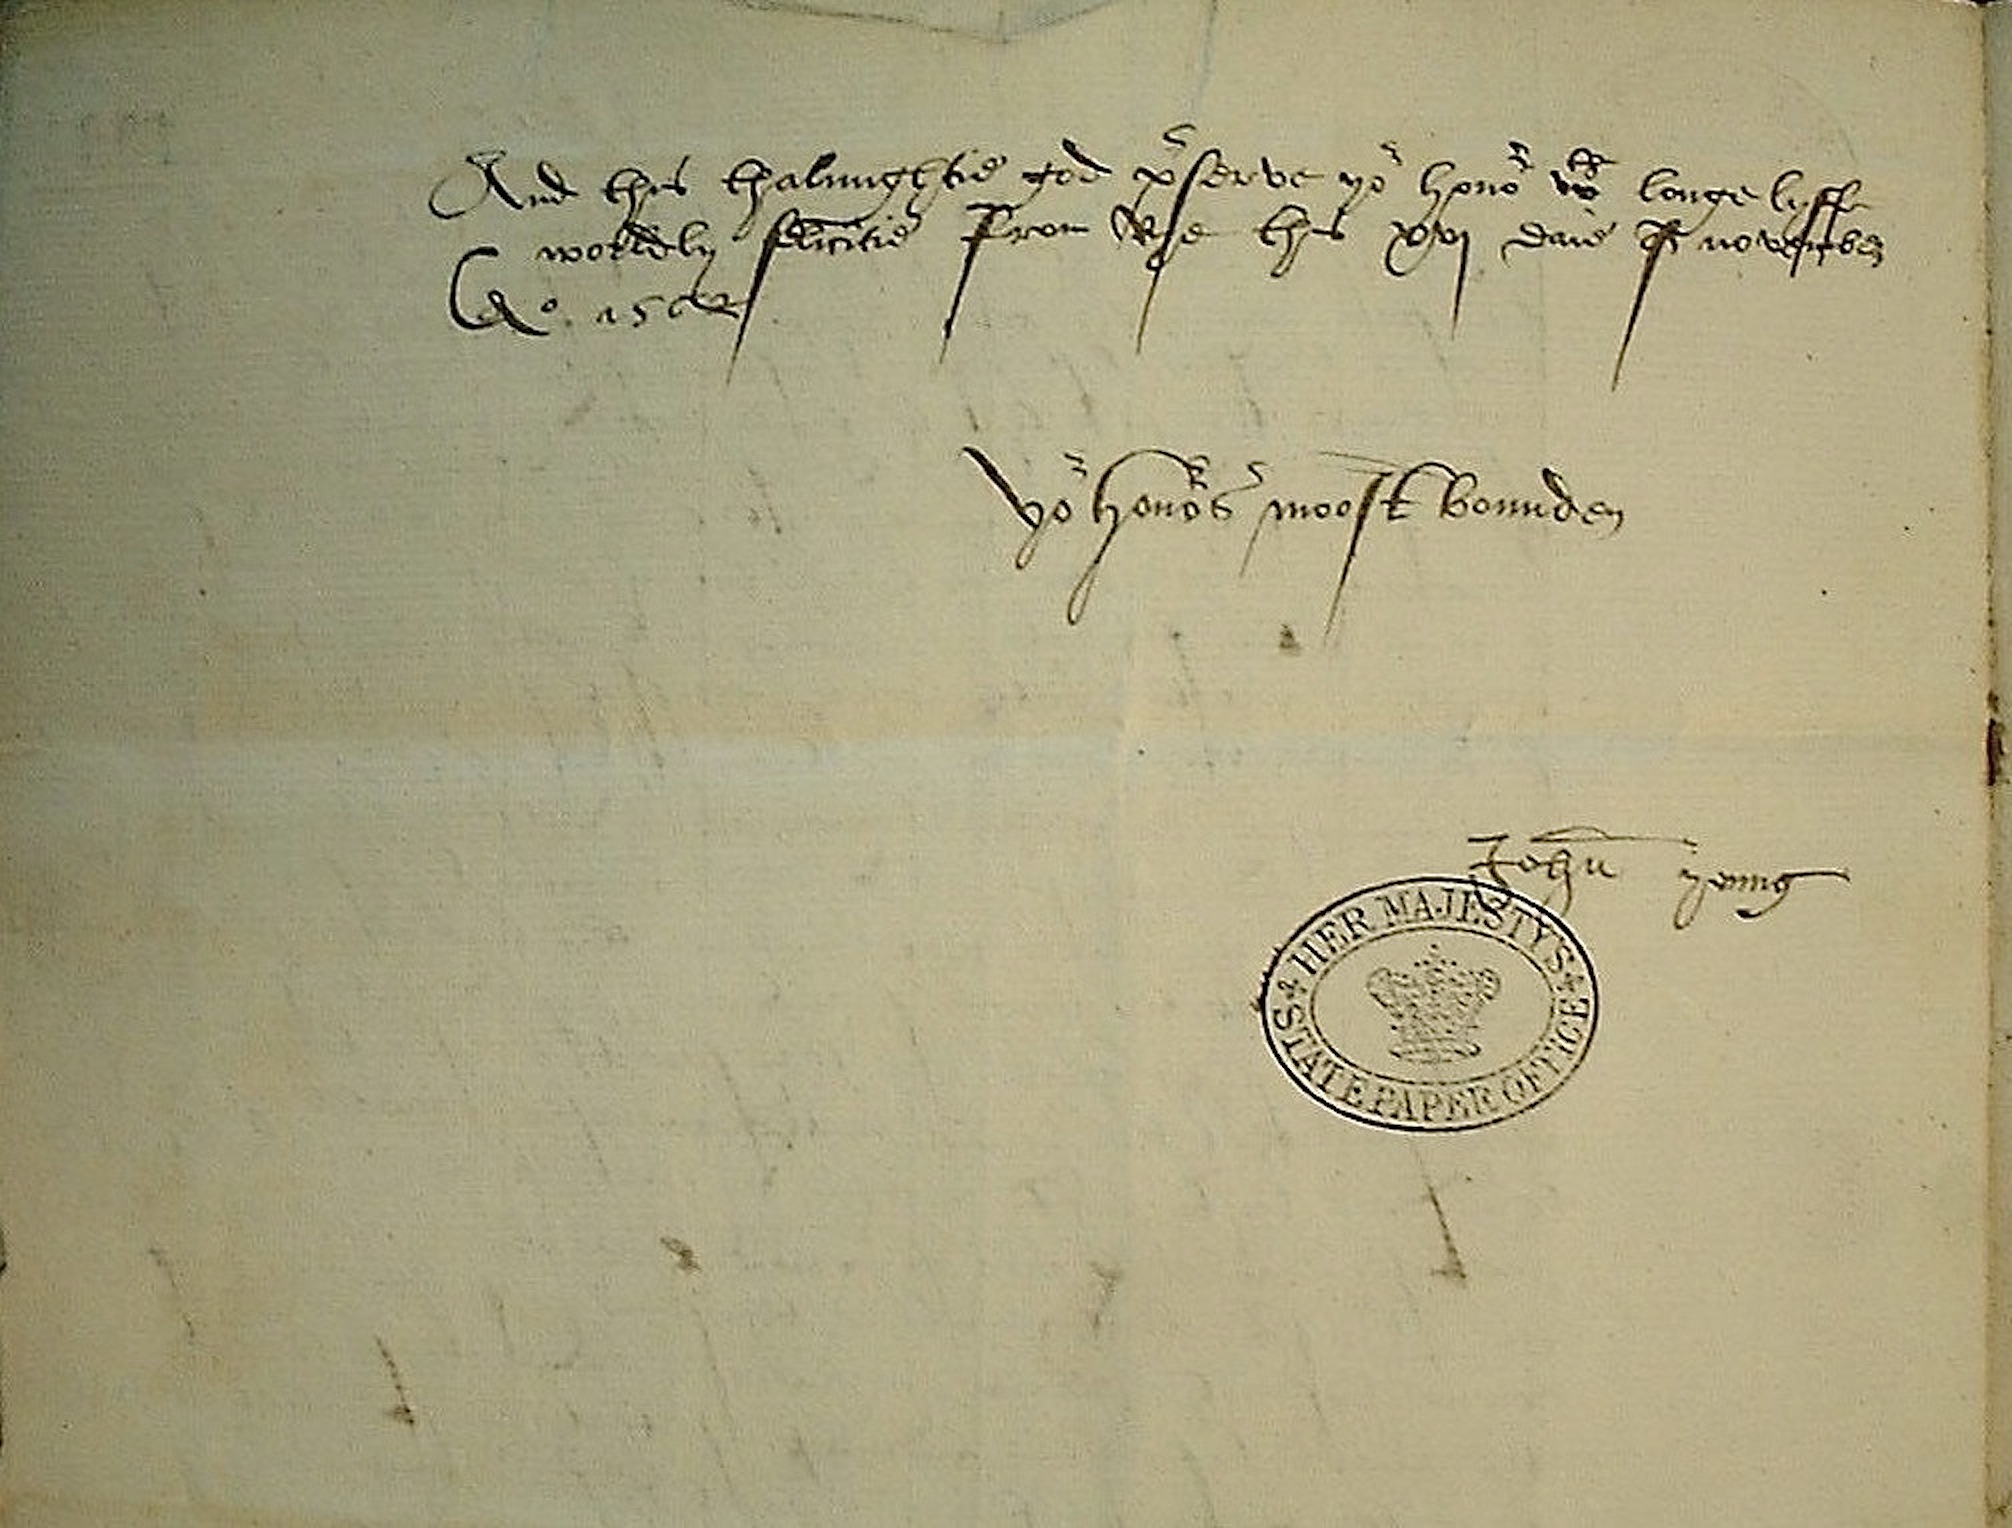 And thus thalmightie god p^rserve yo^r hono^r w^th longe lyffe
worldly felicitie From Rye this xvj daie of november
A^o. 1562
Yo^r hono^rs moost bounden
John yong
HER MAJESTY'S
STATE PAPER OFFICE